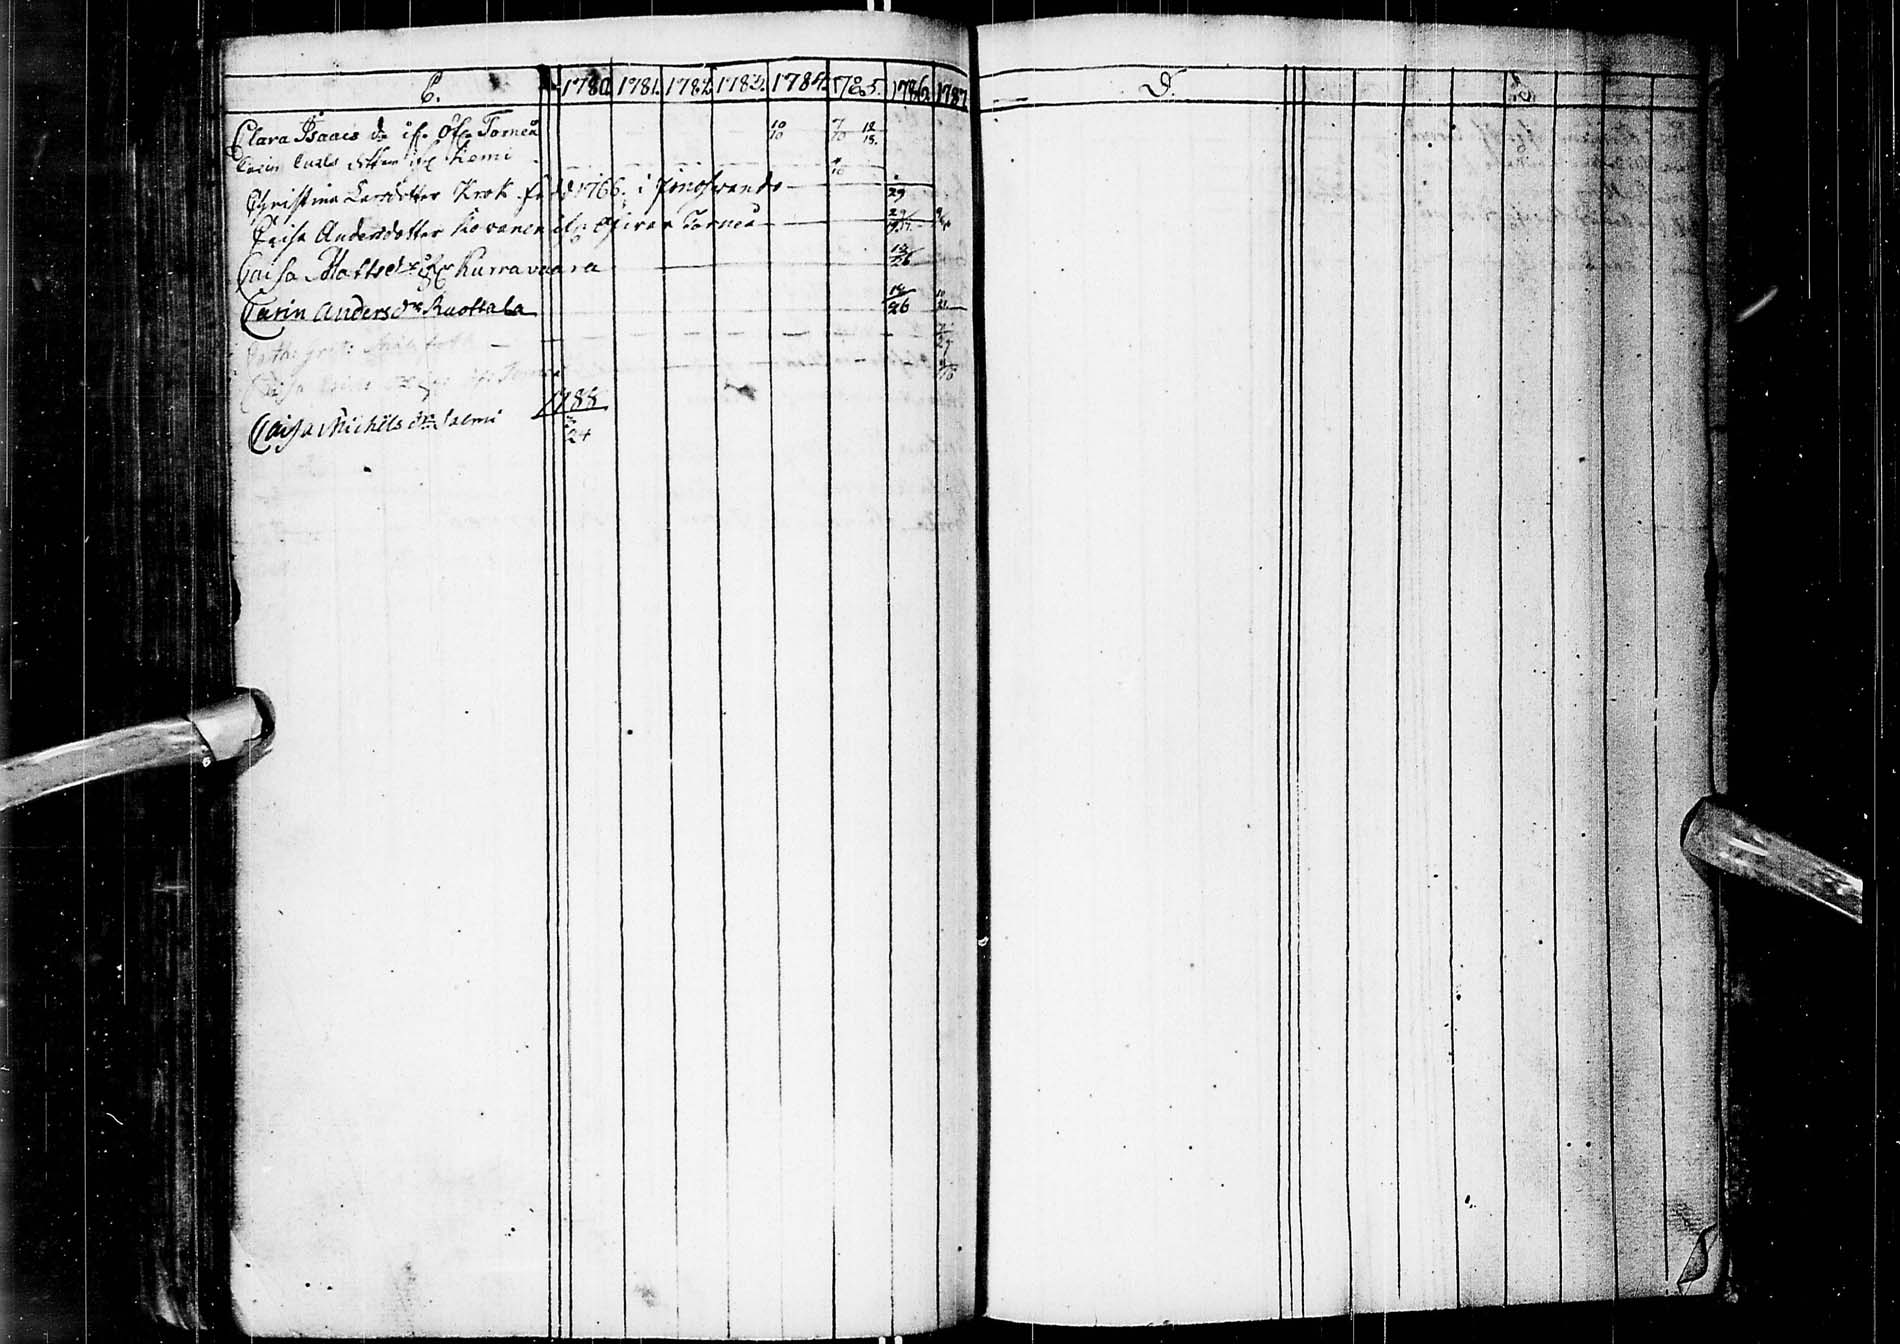 C. 1780 1781. 1782. 1783. 1784. 1785. 1786. 1787
Clara Isaacs dr ifr. Öfr Torneå 10/10 7/10 12/18.
Carin Carls dotter ifr Kemi
Christina Larsdotter Krok född 1766. i Junosuando 29
Caisa Andersdotter Kovanen ifr öfwer Torneå
Caisa Matts dr ifr Kurravaara 12/26
Carin Anders dr Ruottala 12/26 10
Caisa Torneå
1788
Caisa Michels dr Salmi 24
D.